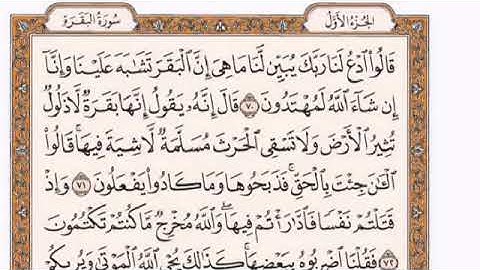 الجزء الأول
سورة البقرة
قَالُوا۟ ٱدْعُ لَنَا رَبَّكَ يُبَيِّن لَّنَا مَا هِىَ إِنَّ ٱلْبَقَرَ تَشَٰبَهَ عَلَيْنَا وَإِنَّآ
إِن شَآءَ ٱللَّهُ لَمُهْتَدُونَ ٧٠ قَالَ إِنَّهُۥ يَقُولُ إِنَّهَا بَقَرَةٌ لَّا ذَلُولٌ
تُثِيرُ ٱلْأَرْضَ وَلَا تَسْقِى ٱلْحَرْثَ مُسَلَّمَةٌ لَّا شِيَةَ فِيهَا ۚ قَالُوا۟
ٱلْـَٰٔنَ جِئْتَ بِٱلْحَقِّ ۚ فَذَبَحُوهَا وَمَا كَادُوا۟ يَفْعَلُونَ ٧١ وَإِذْ
قَتَلْتُمْ نَفْسًا فَٱدَّٰرَْٰٔتُمْ فِيهَا ۖ وَٱللَّهُ مُخْرِجٌ مَّا كُنتُمْ تَكْتُمُونَ
٧٢ فَقُلْنَا ٱضْرِبُوهُ بِبَعْضِهَا ۚ كَذَٰلِكَ يُحْىِ ٱللَّهُ ٱلْمَوْتَىٰ وَيُرِيكُمْ